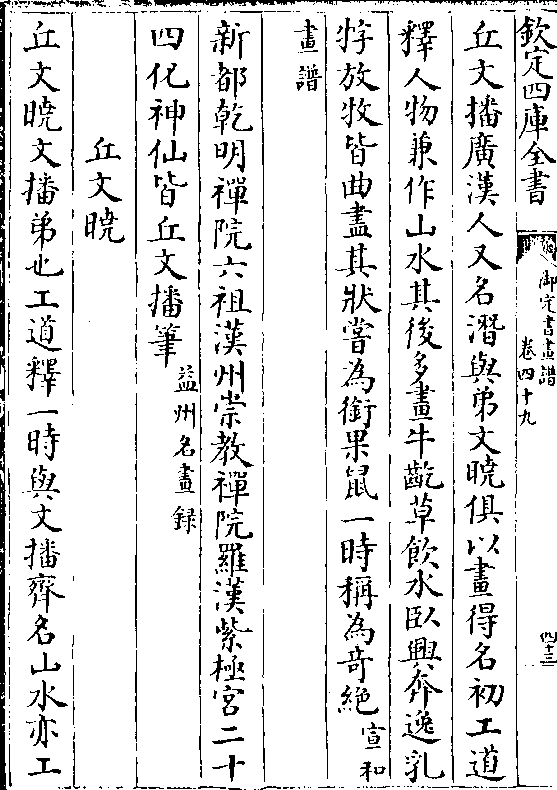 欽定四庫全書
御定書畫譜
卷四十九
四十三
丘文播廣漢人又名潛與弟文曉俱以畫得名初工道
釋人物兼作山水其後多畫牛齕草飲水臥興奔逸乳
牸放牧皆曲盡其狀嘗為銜果鼠一時稱為奇絶宣和
畫譜
新都乾明禪院六祖漢州崇教禪院羅漢紫極宮二十
四化神仙皆丘文播筆益州名畫録
丘文曉
丘文曉文播弟也工道釋一時與文播齊名山水亦工